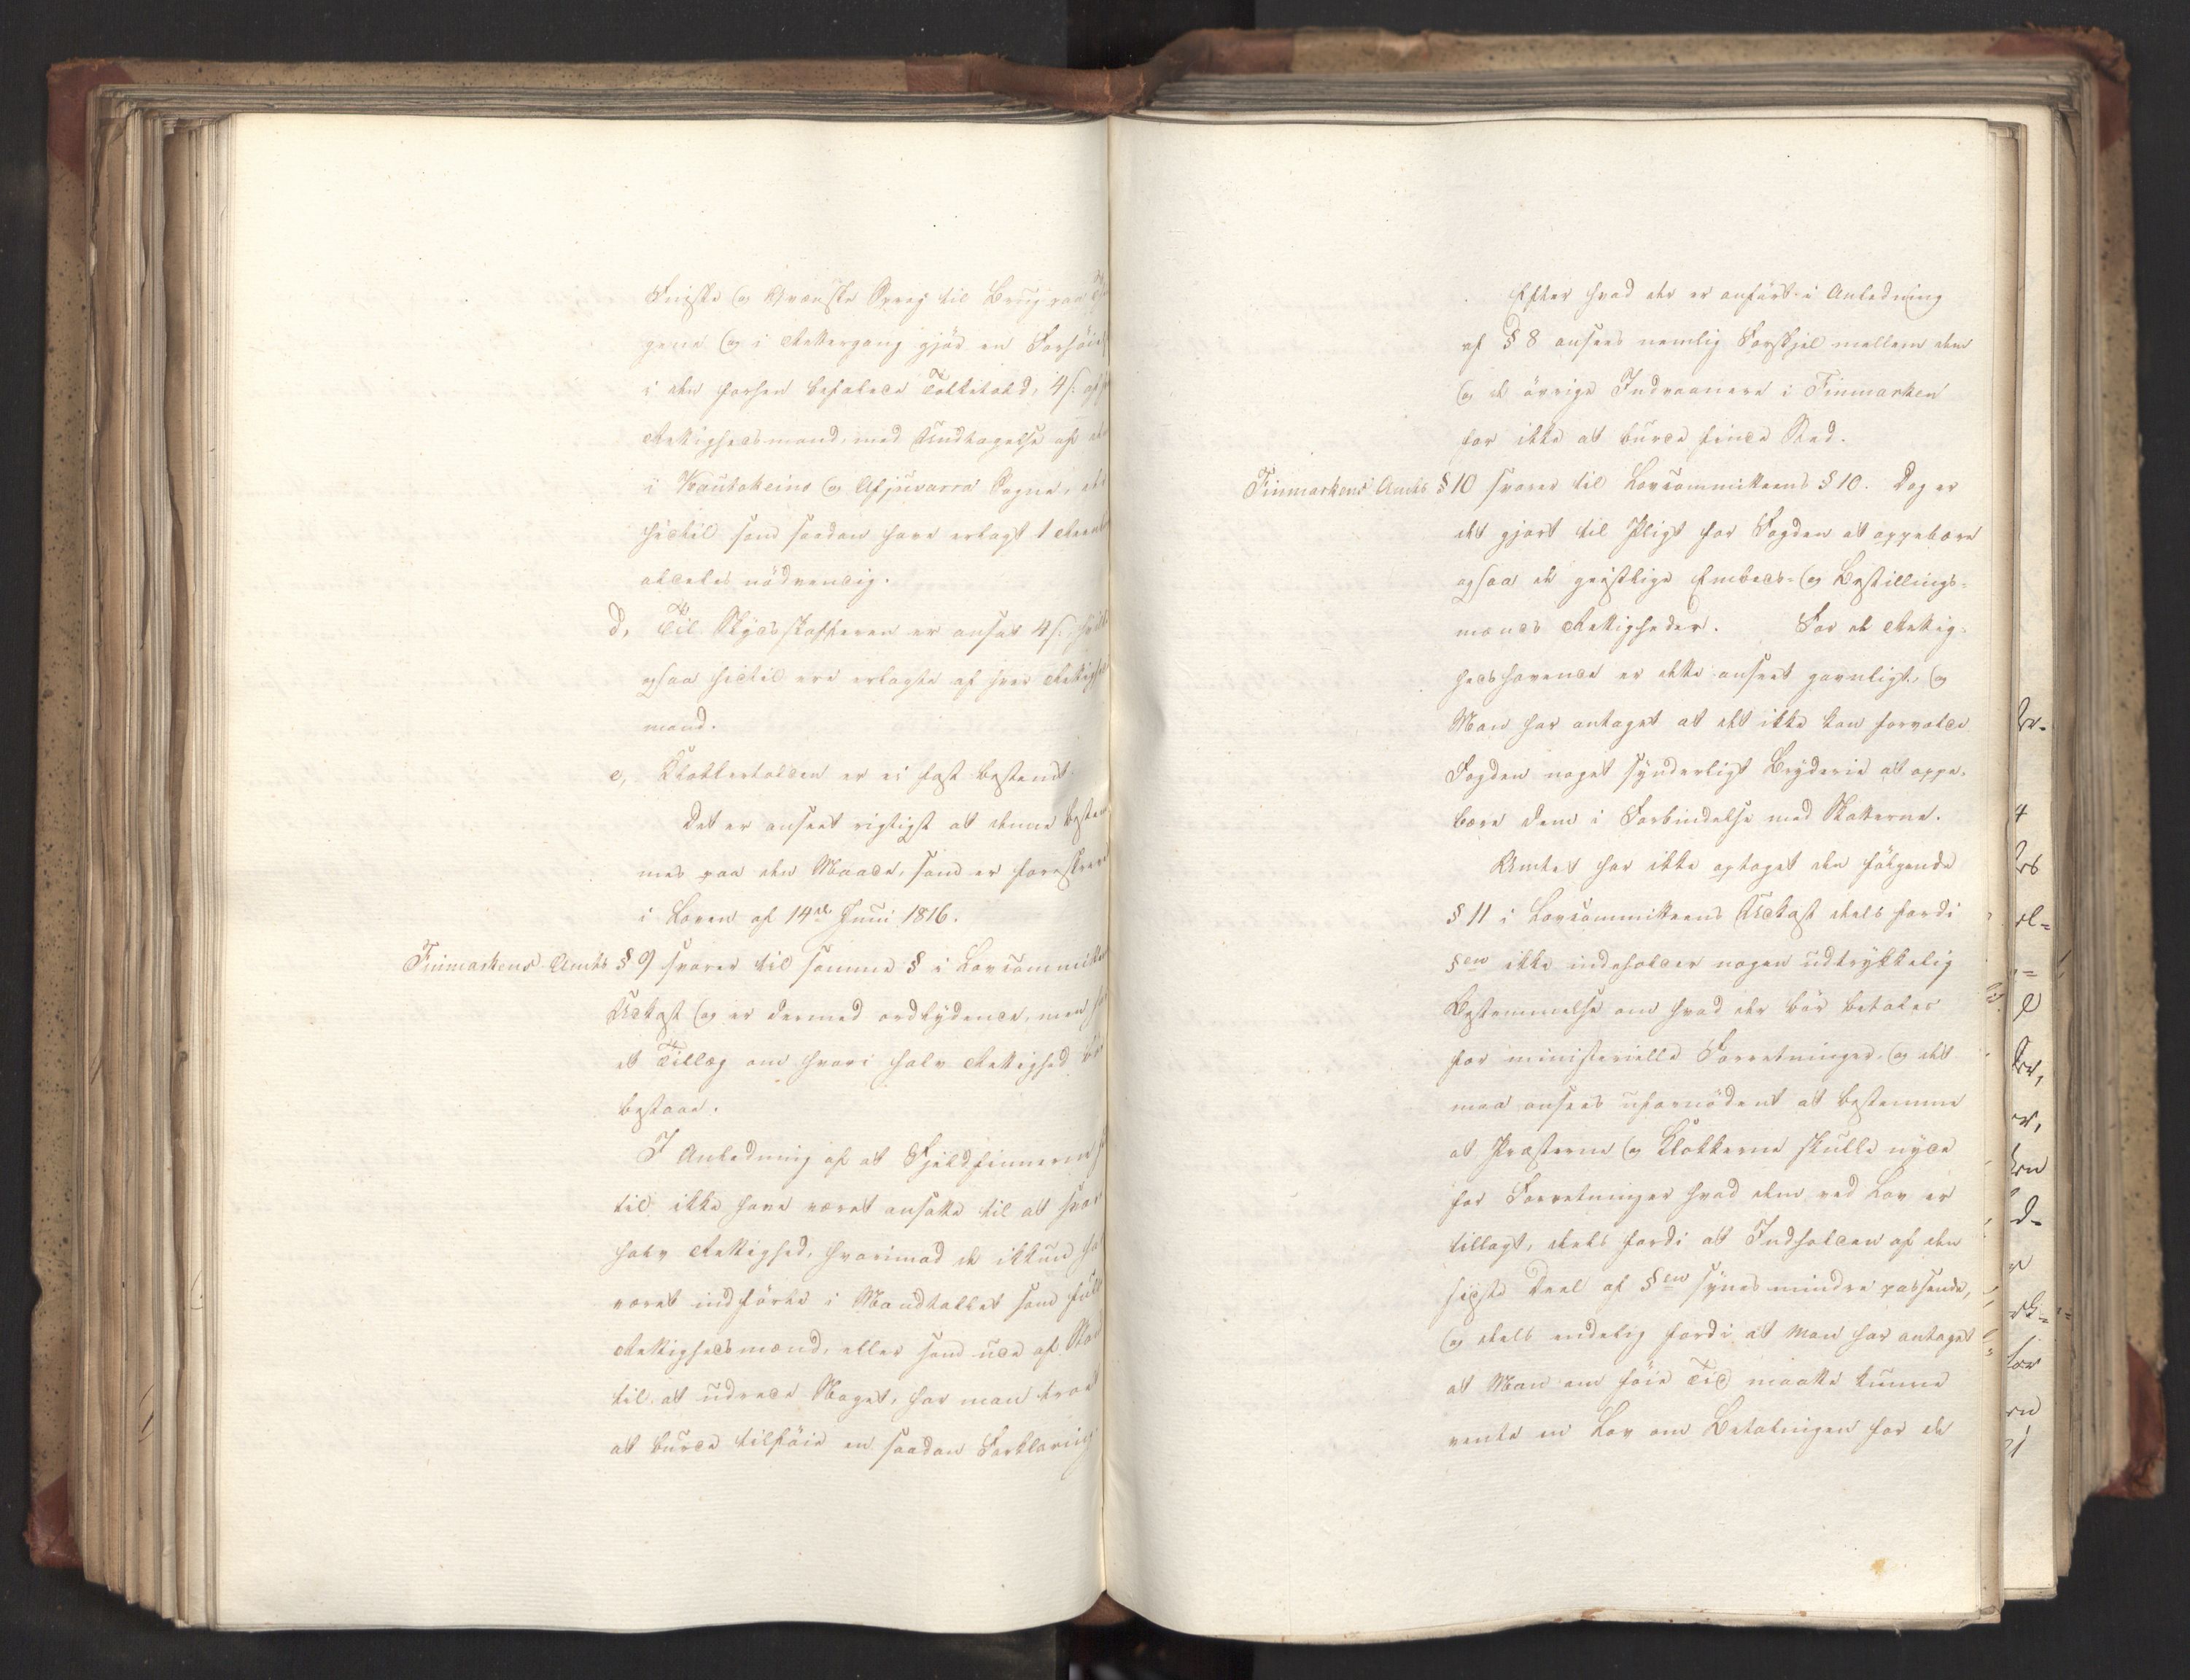 Finske og Qvænske Sprog til Brug paa Thin-
gene og i Rettergang gjør en Forhøielse
i den forhen befalede Tolketold, 4 s: af hver
Rettighedsmand, med Undtagelse af de
i Kautokeino og Afjuvarra Sogne, der
hidtil som saadan have erlagt 1
aldeles nødvendig.
d, Til Skydsskafferen er ansat 4 s:, hvilke
ogsaa hidtil ere erlagte af hver Rettigheds
mand.
e, Klokkertolden er ei fast bestemt
Det er anseet rigtigst at denne bestem
mes paa den Maade, som er foreskreven
i Loven af 14de Juni 1816.
Finmarkens Amts § 9 svarer til samme § i Lovcommitteens
Udkast og er dermed ordlydende, men
et Tillæg om hvori halv Rettighed bør
bestaae.
I Anledning af at Fjeldfinnerne
til ikke have været ansatte til at svare
halv Rettighed, hvorimod de ikkun
været indførte i Mandtallet som fulde
Rettighedsmænd, eller som ude af Stand
til at udrede Noget, har man troet
at burde tilføie en saadan Forklaring
Efter hvad der er anført i Anledning
af § 8 ansees nemlig Forskjel mellem dem
og de øvrige Indvaanere i Finmarken
for ikke at burde finde Sted.
Finmarkens Amts § 10 svarer til Lovcommitteens § 10. Dog er
det gjort til Pligt for Fogden at oppebære
ogsaa de geistlige Embeds- og Bestillings-
mænds Rettigheder. For de Rettig-
hedshavende er dette anseet gavnligt, og
Man har antaget at det ikke kan forvolde
Fogden noget synderligt Bryderie at oppe-
bære dem i Forbindelse med Skatterne.
Amtet har ikke optaget den følgende
§ 11 i Lovcommitteens Udkast deels fordi
§en ikke indeholder nogen udtrykkelig
Bestemmelse om hvad der bør betales
for ministerielle Forretninger, og det
maa ansees ufornødent at bestemme
at Præsterne og Klokkerne skulle nyde
for Forretninger hvad dem ved Lov er
tillagt, deels fordi at Indholden af den
sidste Deel af §en synes mindre passende,
og deels endelig fordi at Man har antaget
at Man om føie Tid maatte kunne
vente en Lov om Betalingen for de